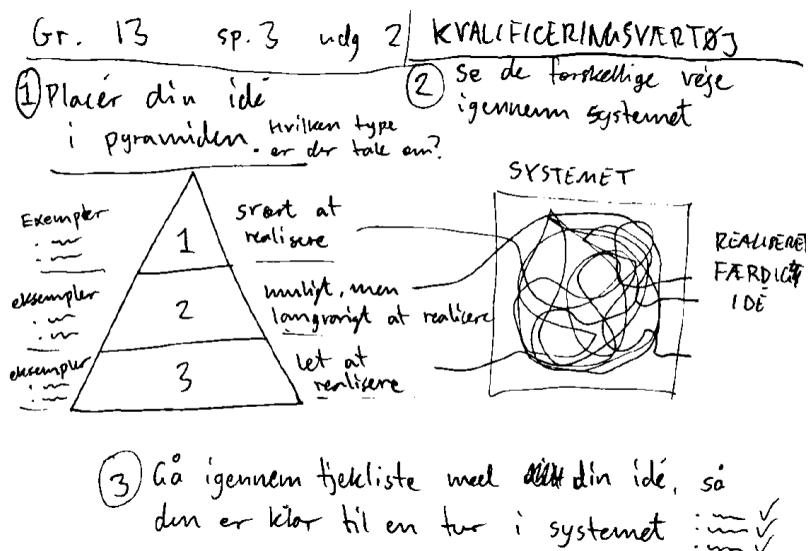 Gr. 13 sp. 3 udg 2 KVALIFICERINGSVÆRTØJ
1 Placér din idé
i pyramiden. Hvilken type
er der tale om?
2 Se de forskellige veje
igennem systemet
Exempler
1
svært at
realisere
eksempler
2
muligt, men
langvarigt at realisere
eksempler
3
let at
realisere
SYSTEMET
REALISERET
FÆRDIG
IDÉ
3 Gå igennem tjekliste med din idé, så
den er klar til en tur i systemet